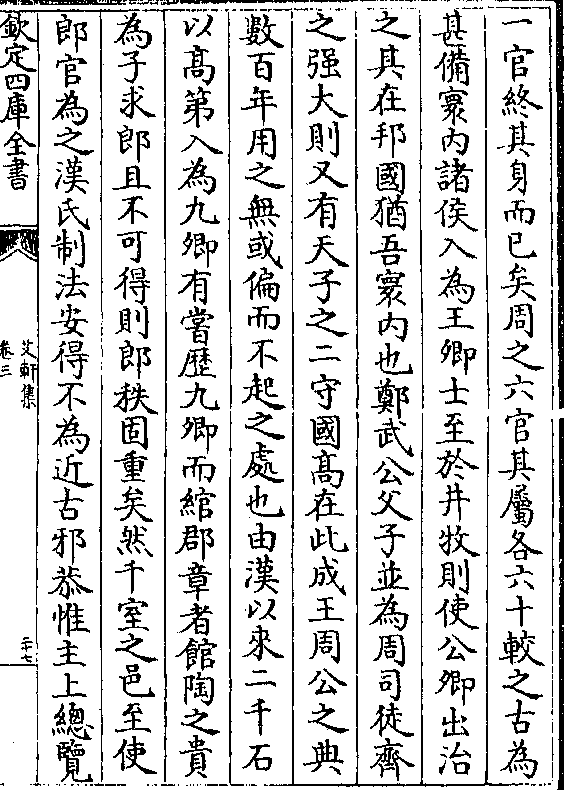 一官終其身而已矣周之六官其屬各六十較之古為
甚備寰内諸侯入為王卿士至於井牧則使公卿出治
之其在邦國猶吾寰内也鄭武公父子並為周司徒齊
之强大則又有天子之二守國髙在此成王周公之典
數百年用之無或偏而不起之處也由漢以來二千石
以髙第入為九卿有嘗歴九卿而綰郡章者館陶之貴
為子求郎且不可得則郎秩固重矣然千室之邑至使
郎官為之漢氏制法安得不為近古邪恭惟主上總覽
欽定四庫全書
艾軒集
卷三
二十七